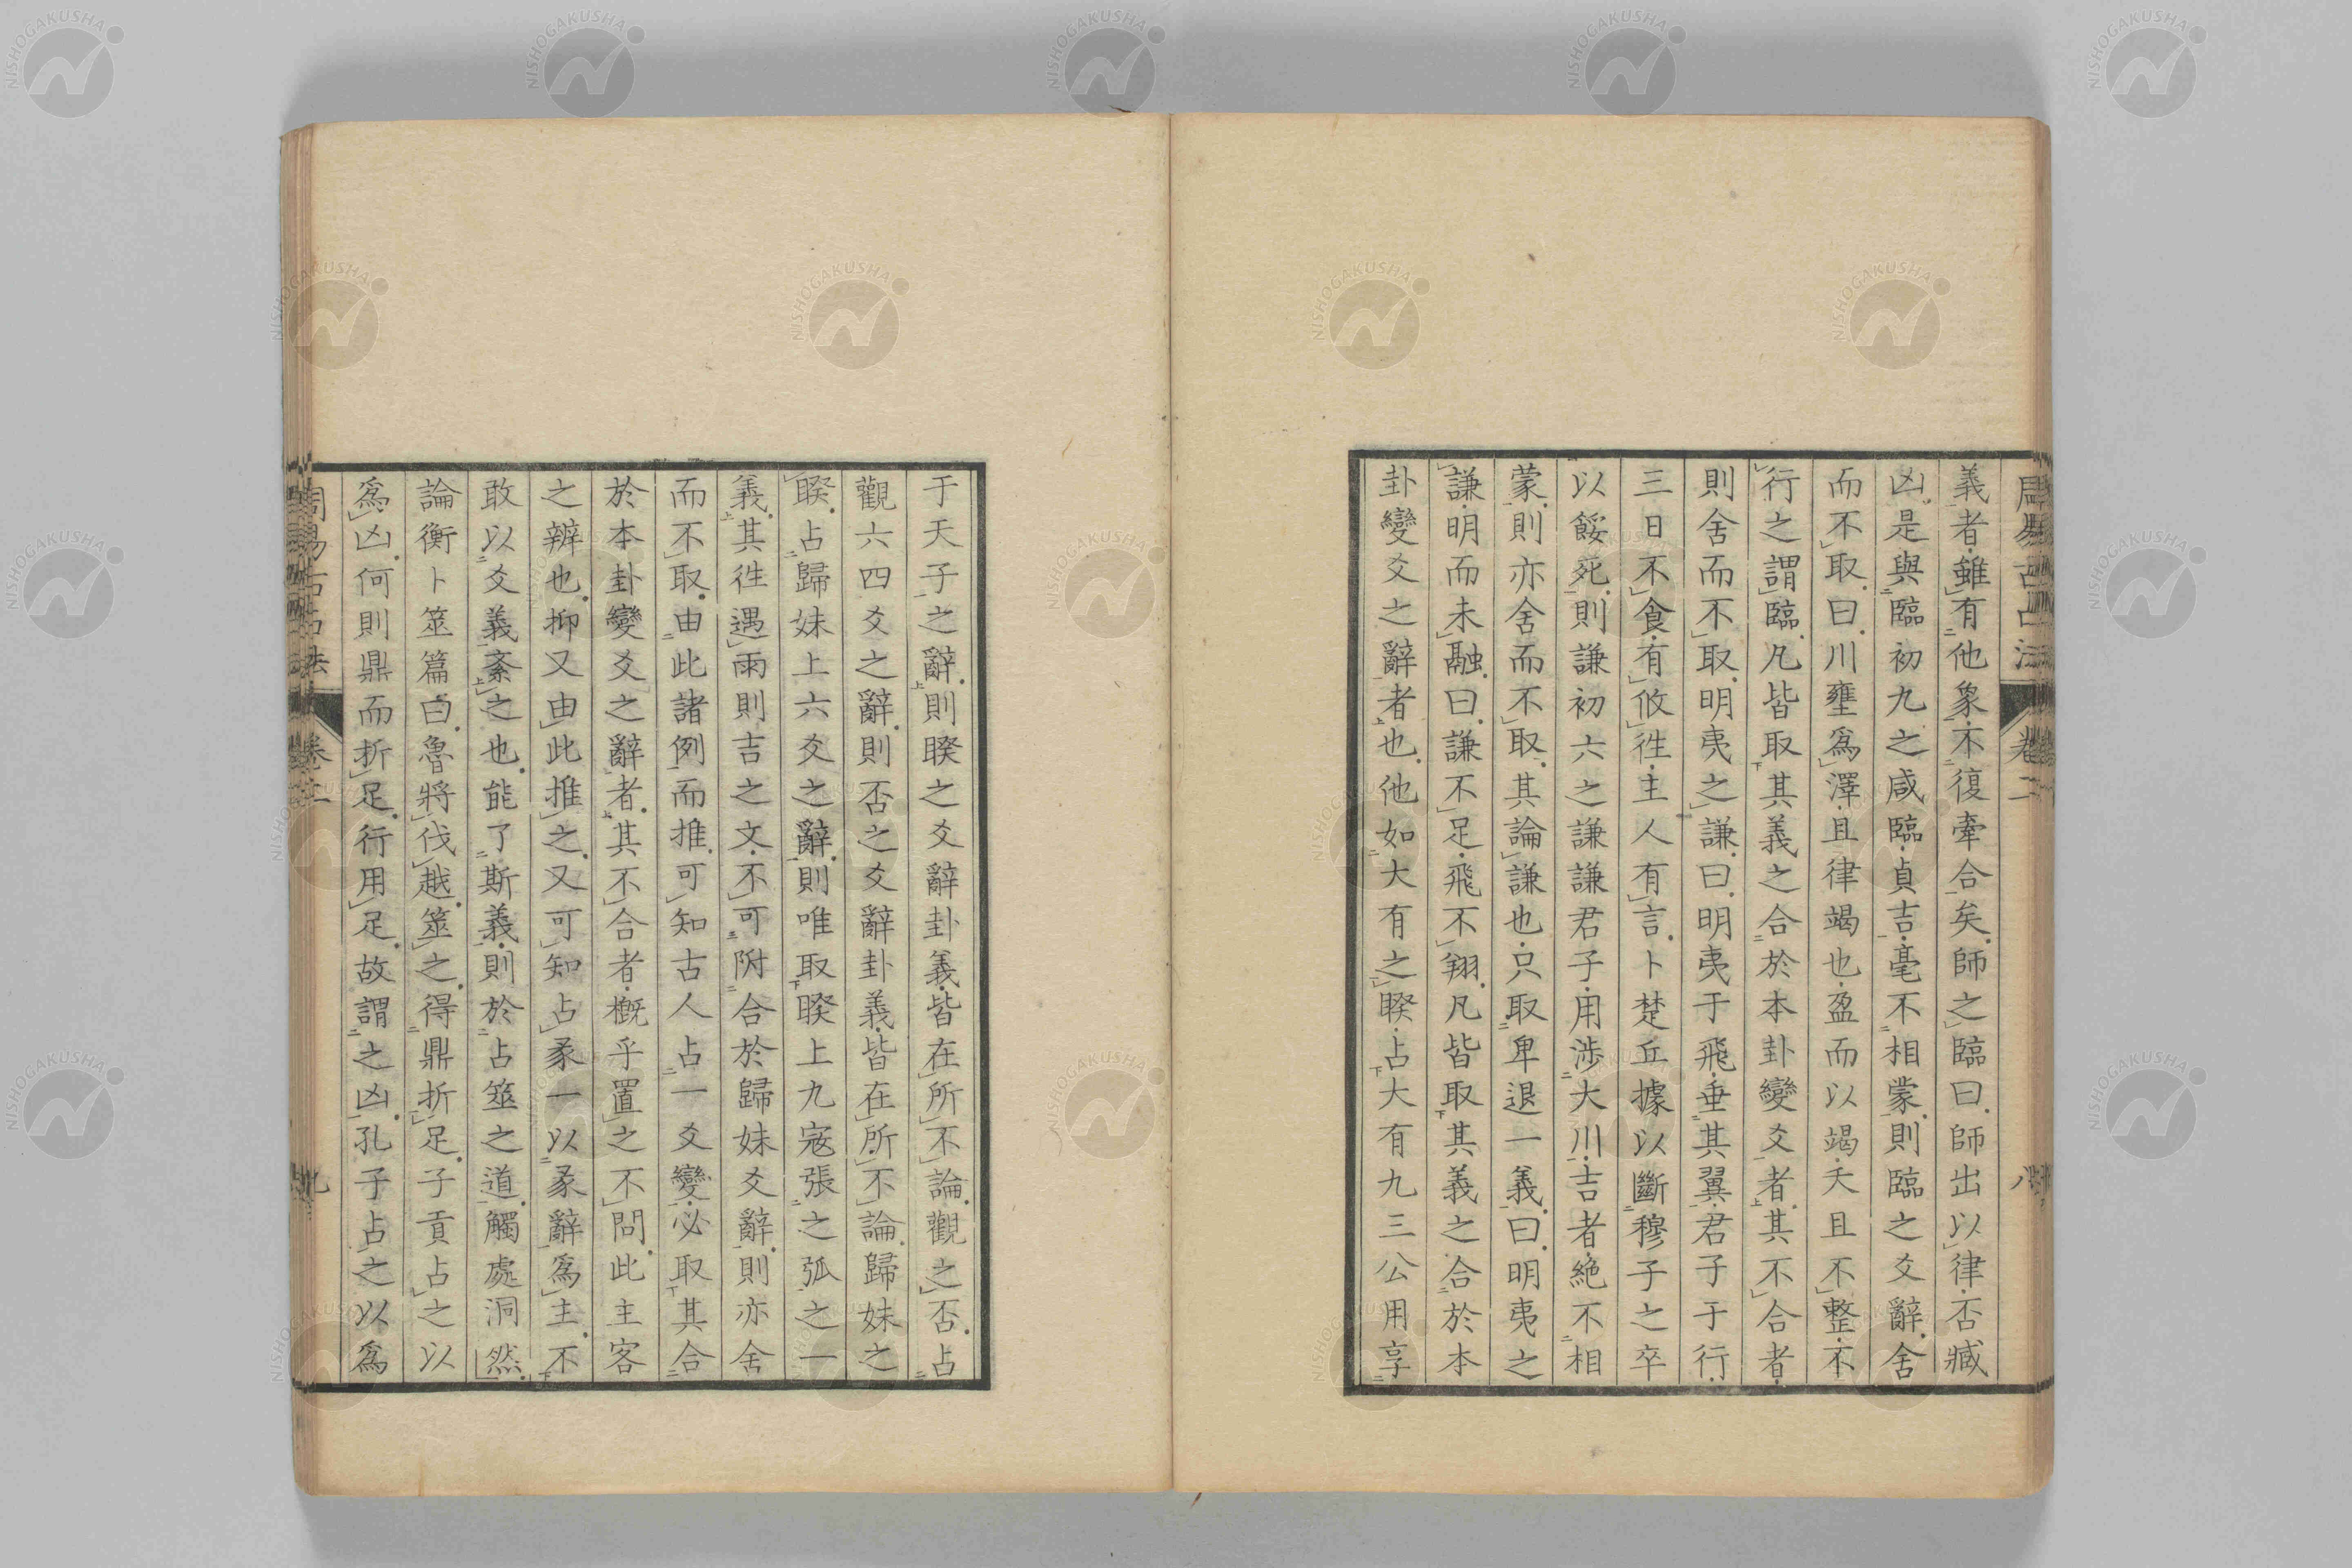 義者雖有他象不復牽合矣師之臨曰師出以律否臧
凶是與臨初九之咸臨貞吉毫不相蒙則臨之爻辭舍
而不取曰川壅爲澤且律竭也盈而以竭夭且不整不
行之謂臨凡皆取其義之合於本卦變爻者其不合者
則舍而不取明夷之謙曰明夷于飛垂其翼君子于行
三日不食有攸往主人有言卜楚丘據以斷穆子之卒
以餒死則謙初六之謙謙君子用涉大川吉者絶不相
蒙則亦舍而不取其論謙也只取卑退一義曰明夷之
謙明而未融曰謙不足飛不翔凡皆取其義之合於本
卦變爻之辭者也他如大有之睽占大有九三公用享
于天子之辭則睽之爻辭卦義皆在所不論觀之否占
觀六四爻之辭則否之爻辭卦義皆在所不論歸妹之
睽占歸妹上六爻之辭則唯取睽上九寇張之弧之一
義其往遇雨則吉之文不可附合於歸妹爻辭則亦舍
而不取由此諸例而推可知古人占一爻變必取其合
於本卦變爻之辭者其不合者概乎置之不問此主客
之辨也抑又由此推之又可知占彖一以彖辭爲主不
敢以爻義紊之也能了斯義則於占筮之道觸處洞然
論衡卜筮篇曰魯將伐越筮之得鼎折足子貢占之以
爲凶何則鼎而折足行用足故謂之凶孔子占之以爲
周易古占法 卷二 八
周易古占法 卷二 九
NISHOGAKUSHA